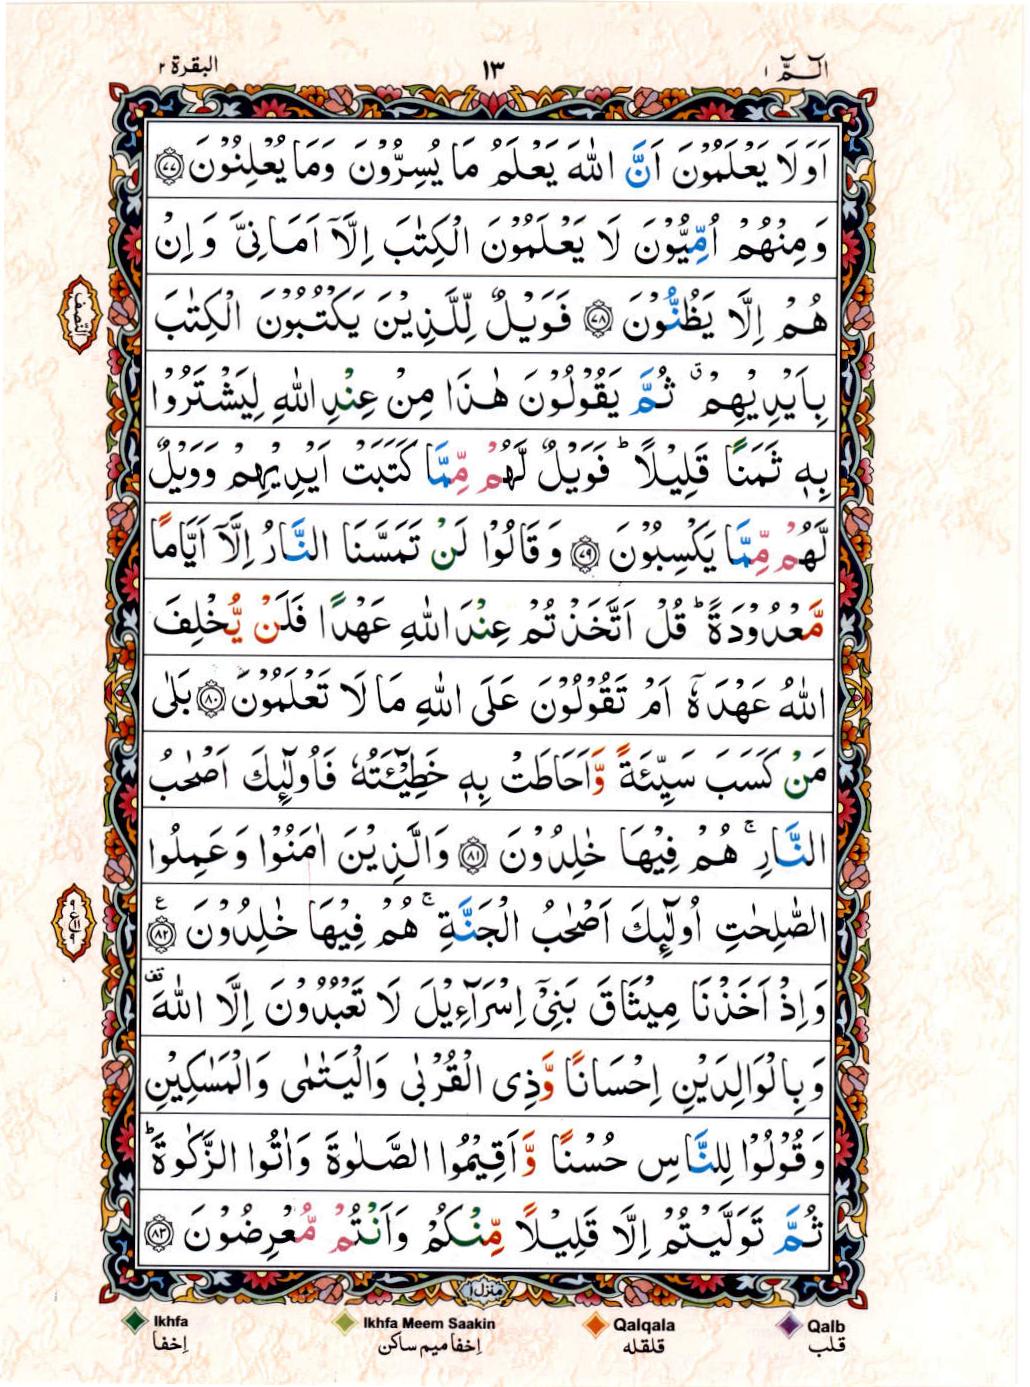 الٓـمّٓ ۱
۱۳
البقرة ۲
اَوَلَا يَعْلَمُوْنَ اَنَّ اللّٰهَ يَعْلَمُ مَا يُسِرُّوْنَ وَمَا يُعْلِنُوْنَ ۝۷۷
وَمِنْهُمْ اُمِّيُّوْنَ لَا يَعْلَمُوْنَ الْكِتٰبَ اِلَّاۤ اَمَانِىَّ وَاِنْ
هُمْ اِلَّا يَظُنُّوْنَ ۝۷۸ فَوَيْلٌ لِّلَّذِيْنَ يَكْتُبُوْنَ الْكِتٰبَ
النّصف
بِاَيْدِيْهِمْ ۗ ثُمَّ يَقُوْلُوْنَ هٰذَا مِنْ عِنْدِ اللّٰهِ لِيَشْتَرُوْا
بِهٖ ثَمَنًا قَلِيْلًا ؕ فَوَيْلٌ لَّهُمْ مِّمَّا كَتَبَتْ اَيْدِيْهِمْ وَوَيْلٌ
لَّهُمْ مِّمَّا يَكْسِبُوْنَ ۝۷۹ وَقَالُوْا لَنْ تَمَسَّنَا النَّارُ اِلَّاۤ اَيَّامًا
مَّعْدُوْدَةً ؕ قُلْ اَتَّخَذْتُمْ عِنْدَ اللّٰهِ عَهْدًا فَلَنْ يُّخْلِفَ
اللّٰهُ عَهْدَهٗۤ اَمْ تَقُوْلُوْنَ عَلَى اللّٰهِ مَا لَا تَعْلَمُوْنَ ۝۸۰ بَلٰى
مَنْ كَسَبَ سَيِّئَةً وَّاَحَاطَتْ بِهٖ خَطِيْٓئَتُهٗ فَاُولٰٓئِكَ اَصْحٰبُ
النَّارِ ۚ هُمْ فِيْهَا خٰلِدُوْنَ ۝۸۱ وَالَّذِيْنَ اٰمَنُوْا وَعَمِلُوا
الصّٰلِحٰتِ اُولٰٓئِكَ اَصْحٰبُ الْجَنَّةِ ۚ هُمْ فِيْهَا خٰلِدُوْنَ ۝۸۲ ع
وَاِذْ اَخَذْنَا مِيْثَاقَ بَنِىْٓ اِسْرَآءِيْلَ لَا تَعْبُدُوْنَ اِلَّا اللّٰهَ قف
وَبِالْوَالِدَيْنِ اِحْسَانًا وَّذِى الْقُرْبٰى وَالْيَتٰمٰى وَالْمَسٰكِيْنِ
وَقُوْلُوْا لِلنَّاسِ حُسْنًا وَّاَقِيْمُوا الصَّلٰوةَ وَاٰتُوا الزَّكٰوةَ ؕ
ثُمَّ تَوَلَّيْتُمْ اِلَّا قَلِيْلًا مِّنْكُمْ وَاَنْتُمْ مُّعْرِضُوْنَ ۝۸۳
منزل۱
Ikhfa
اِخفا
Ikhfa Meem Saakin
اِخفا میم ساکن
Qalqala
قلقله
Qalb
قلب